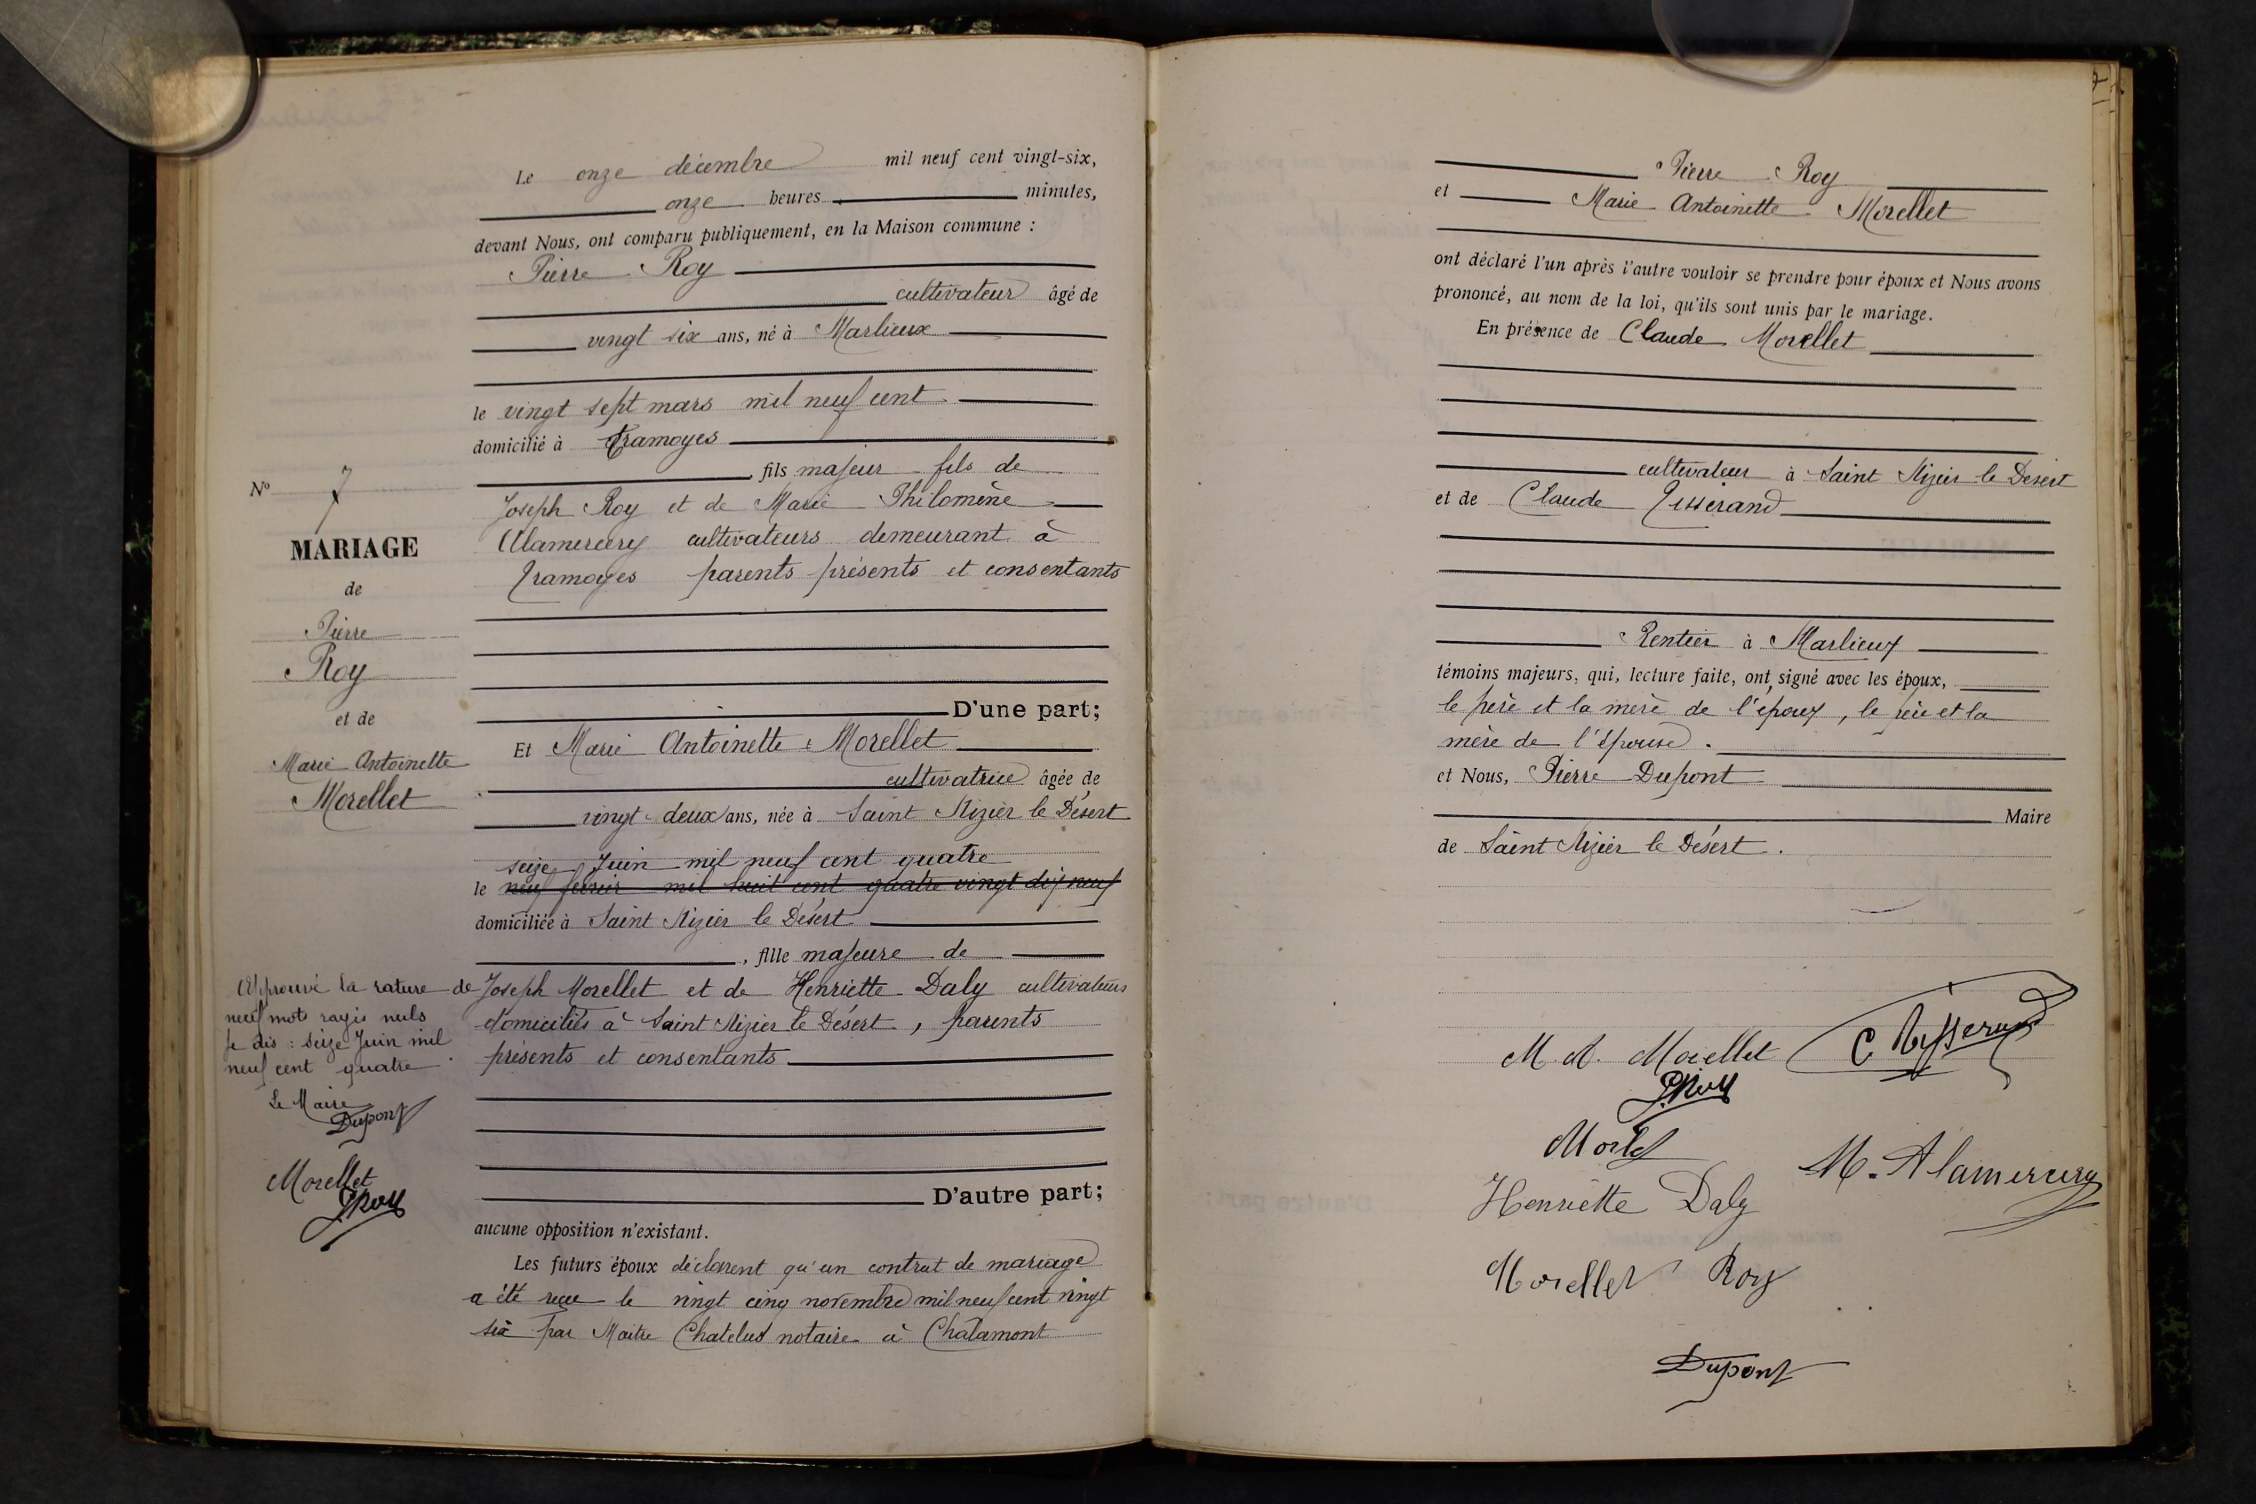 Le onze décembre mil neuf cent vingt-six,
onze heures minutes,
devant Nous, ont comparu publiquement, en la Maison commune :
Pierre Roy
cultivateur âgé de
vingt six ans, né à Marlieux
le vingt sept mars mil neuf cent
domicilié à Tramoyes
, fils majeur fils de
Joseph Roy et de Marie Philomène
Alamercery cultivateurs demeurant à
Tramoyes parents présents et consentants
D'une part;
Et Marie Antoinette Morellet
cultivatrice âgée de
vingt-deux ans, née à Saint Nizier le Désert
seize Juin mil neuf cent quatre
le neuf février mil huit cent quatre vingt dix neuf
domiciliée à Saint Nizier le Désert
, fille majeure de
Joseph Morellet et de Henriette Daly cultivateurs
domiciliés à Saint Nizier le Désert, parents
présents et consentants
D'autre part;
aucune opposition n'existant.
Les futurs époux déclarent qu'un contrat de mariage
a été reçu le vingt cinq novembre mil neuf cent vingt
six par Maître Chatelus notaire à Chalamont
N° 7
MARIAGE
de
Pierre
Roy
et de
Marie Antoinette
Morellet
Approuvé la rature de
neuf mots rayés nuls
Je dis : seize Juin mil
neuf cent quatre.
Le Maire
Dupont
Morellet
P. Roy
Pierre Roy
et Marie Antoinette Morellet
ont déclaré l'un après l'autre vouloir se prendre pour époux et Nous avons
prononcé, au nom de la loi, qu'ils sont unis par le mariage.
En présence de Claude Morellet
cultivateur à Saint Nizier le Désert
et de Claude Tisserand
Rentier à Marlieux
témoins majeurs, qui, lecture faite, ont signé avec les époux,
le père et la mère de l'époux, le père et la
mère de l'épouse.
et Nous, Pierre Dupont
Maire
de Saint Nizier le Désert.
M. A. Morellet C. Tisserand
P. Roy
M. Alamercery
Henriette Daly
Morellet Roy
Dupont